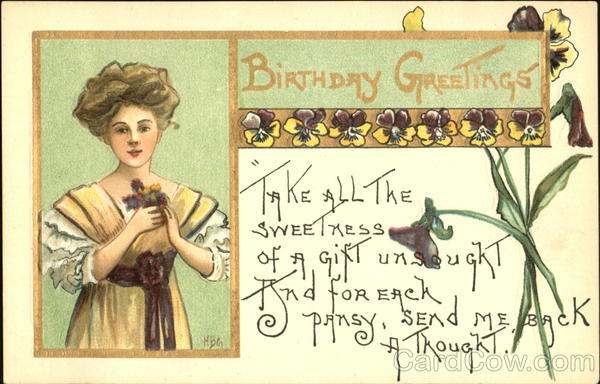 Birthday Greetings
"Take all the
sweetness
of a gift unsought
And for each
pansy, send me back
a thought.
HBG
CardCow.com